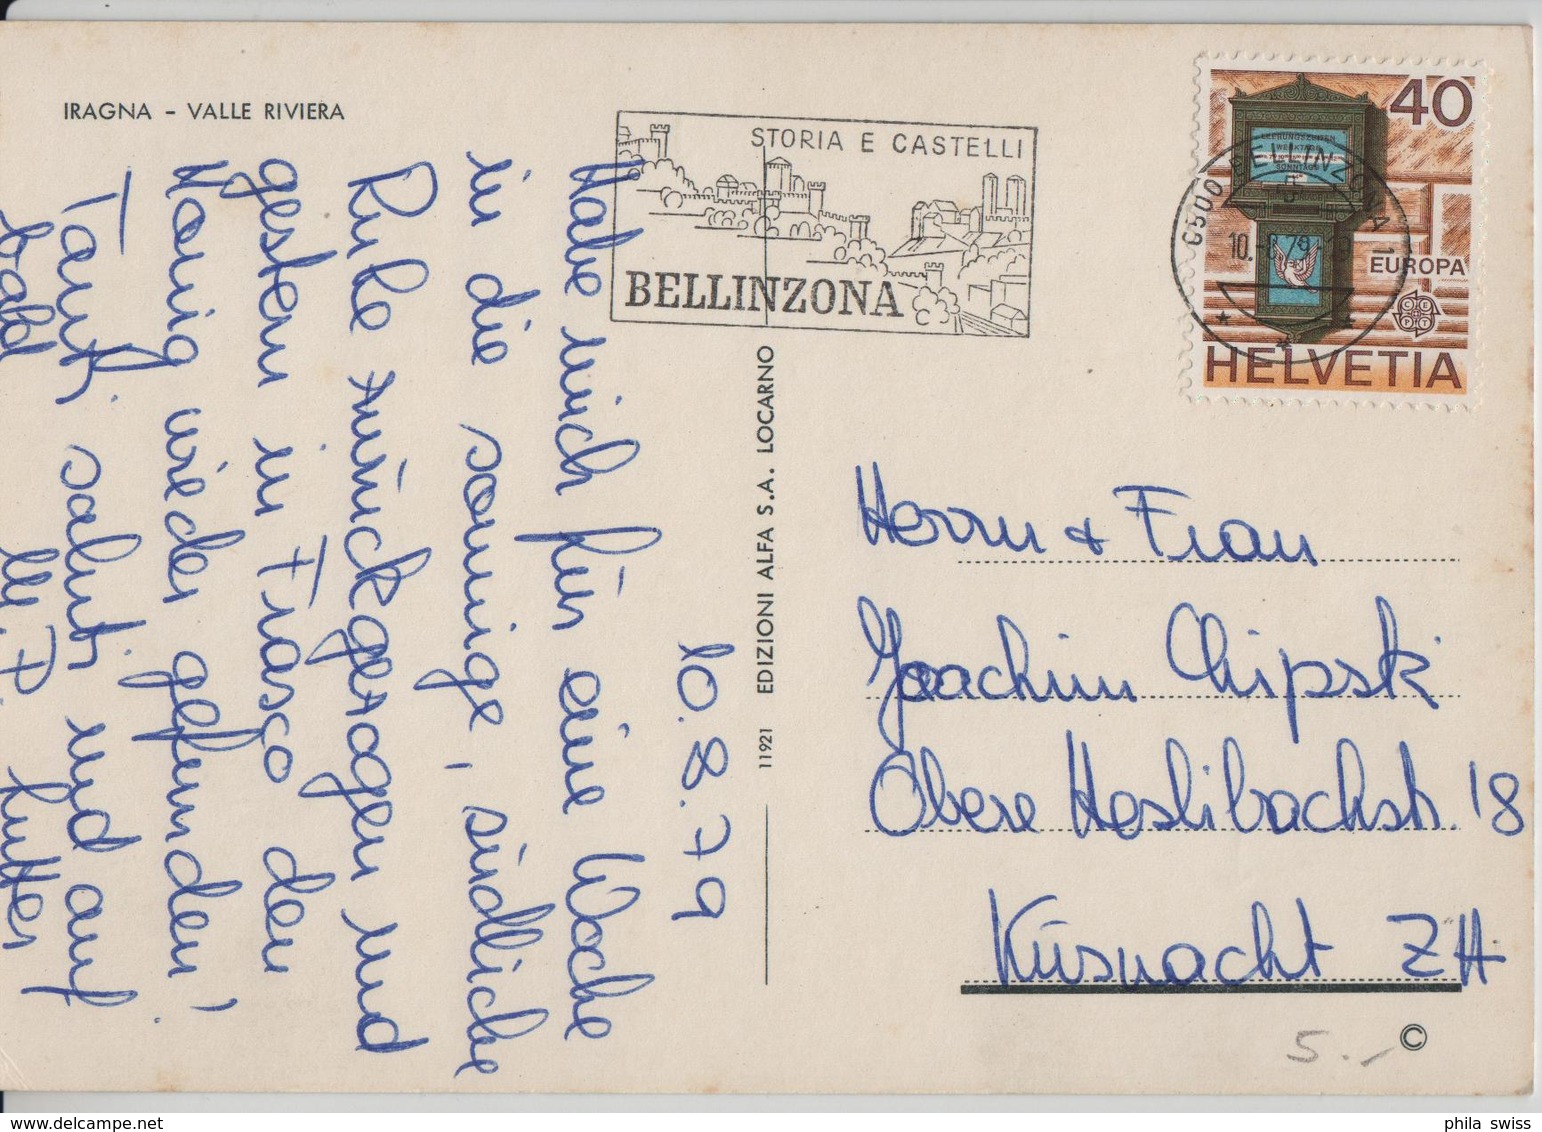 IRAGNA – VALLE RIVIERA
STORIA E CASTELLI
BELLINZONA
40
LEERUNGSZEITEN
WERKTAGE
SONNTAGE
6500 BELLINZONA 1
10.-8.79
EUROPA
CEPT
HELVETIA
10.8.79
Habe mich für eine Woche
in die sonnige, südliche
Ruhe zurückgezogen und
gestern in Frasco den
Honig wieder gefunden,
Tanti saluti und auf
bald
EDIZIONI ALFA S.A. LOCARNO
11921
Herrn + Frau
Joachim Chipski
Obere Heslibachstr. 18
Küsnacht ZH
5.-
©
phila swiss